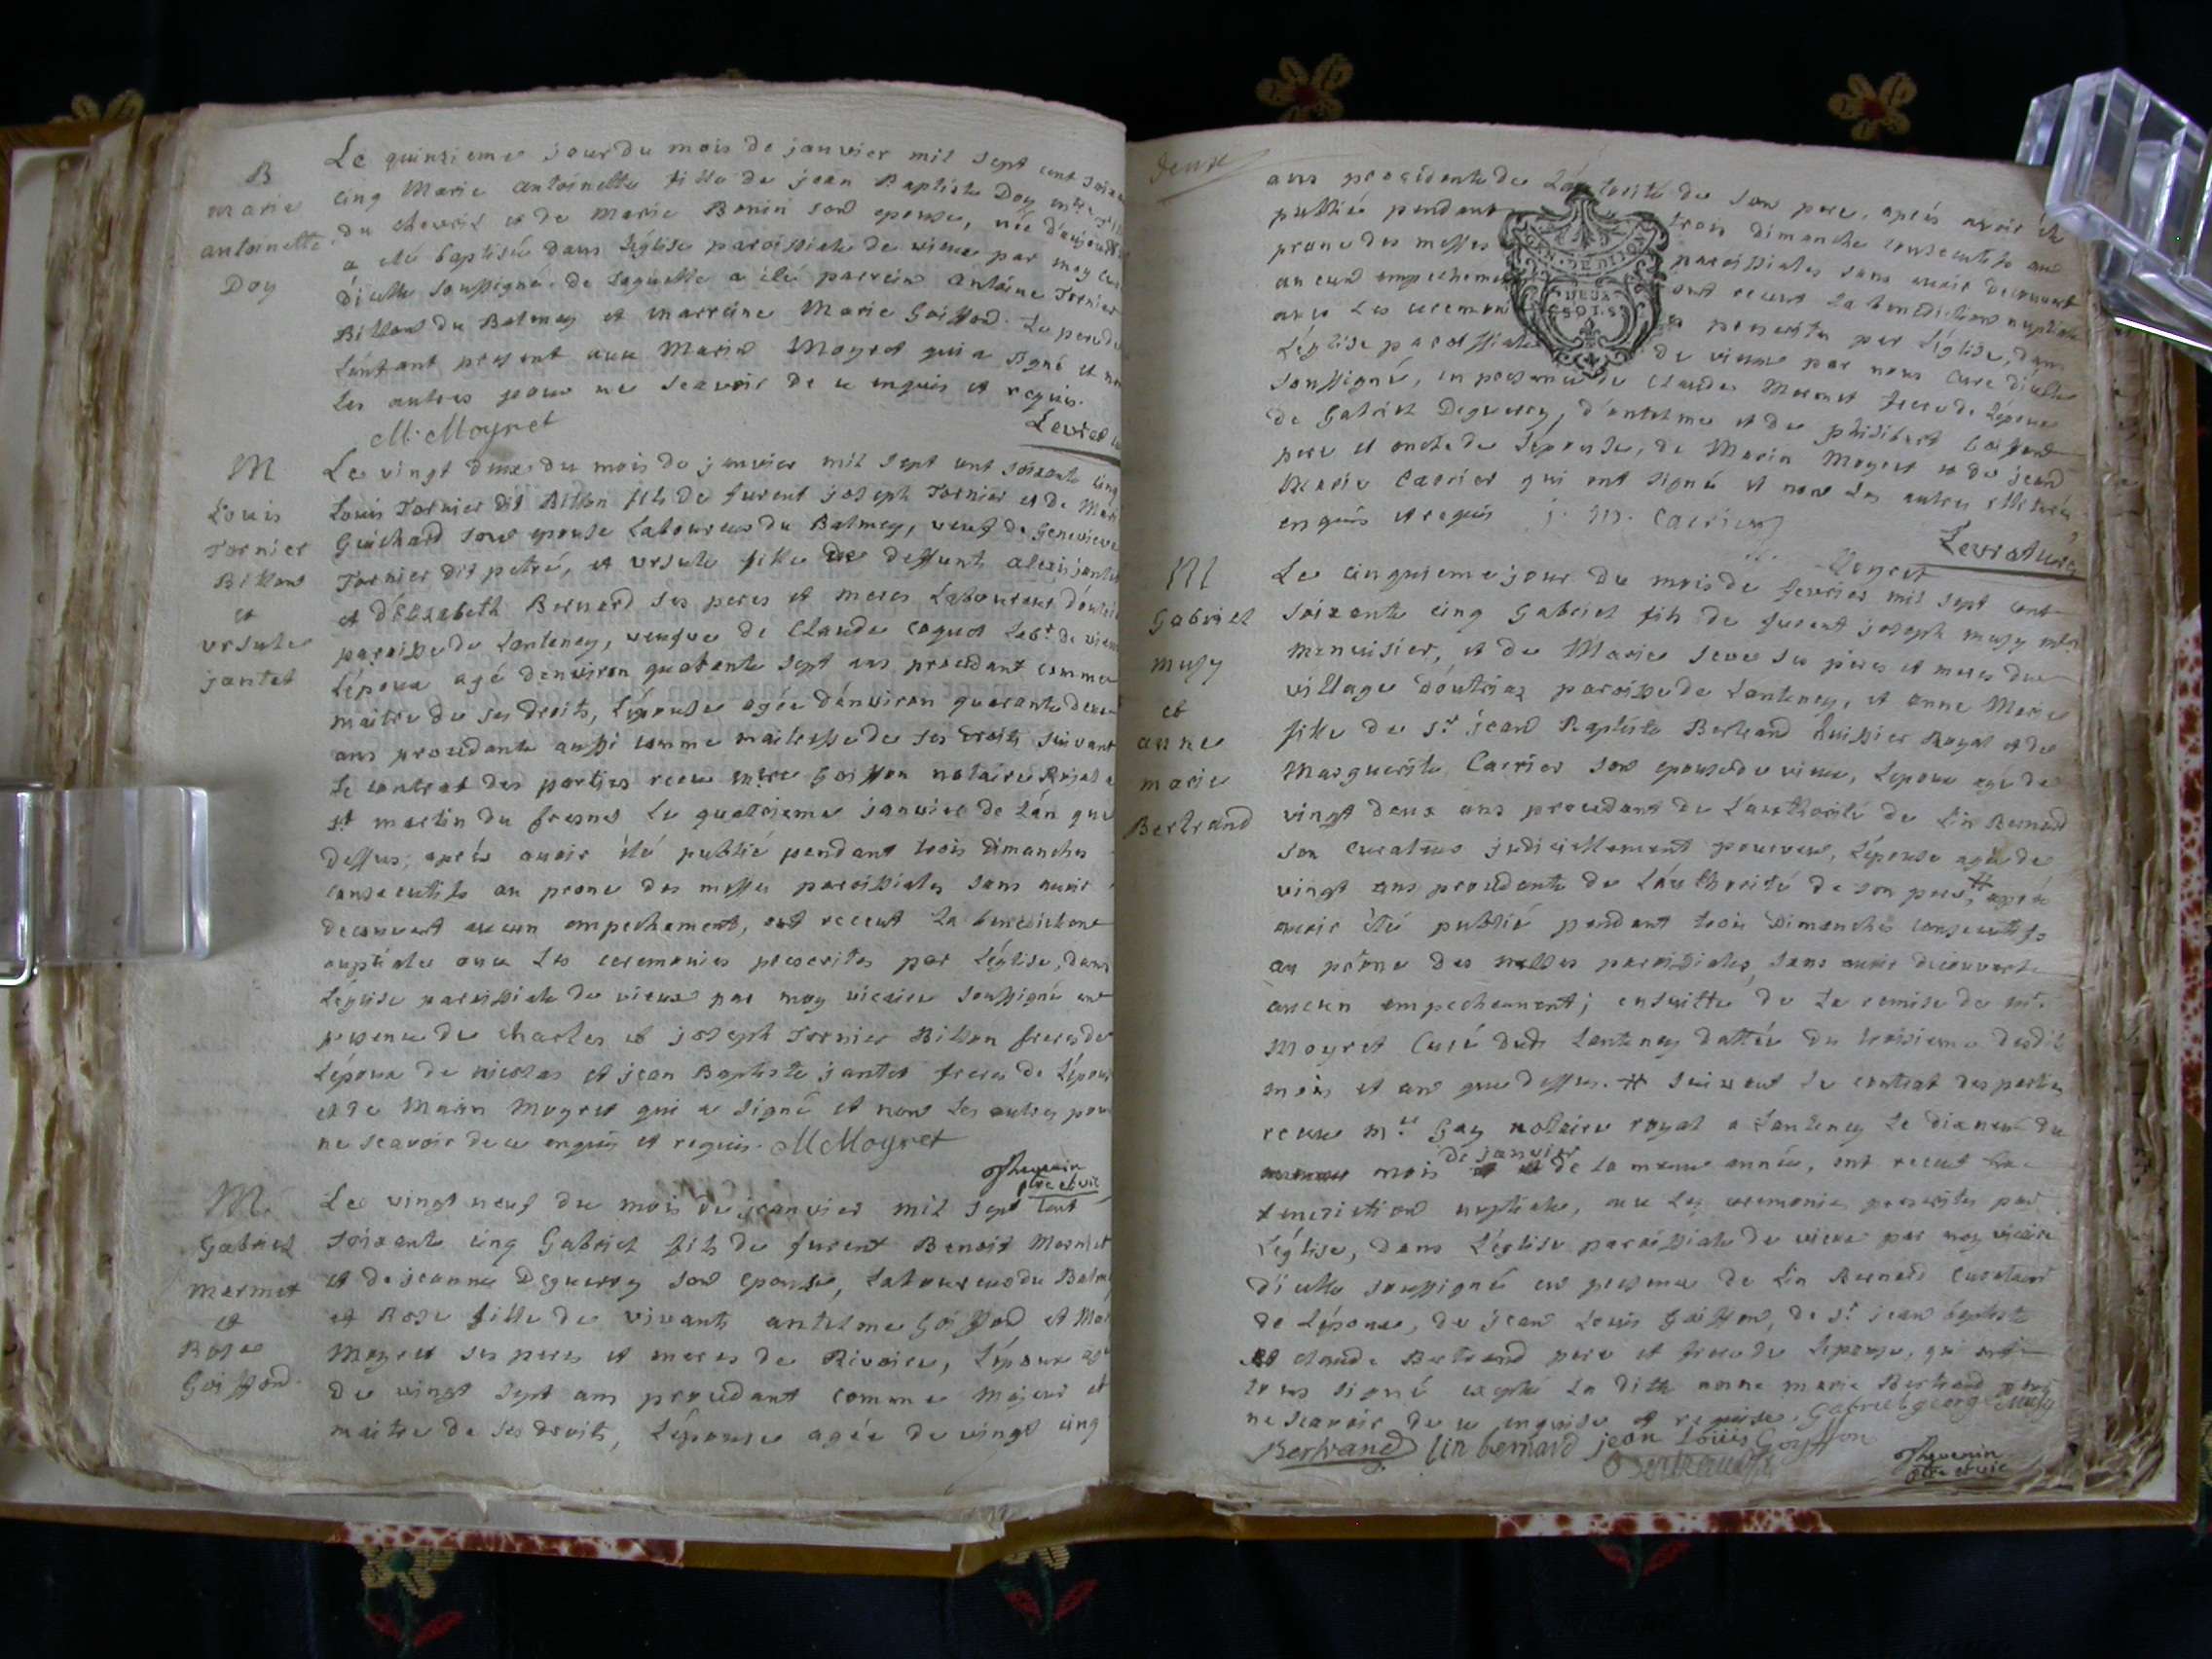 B
marie
antoinette
Doy
Le quinzieme jour du mois de janvier mil sept cent
cinq Marie antoinette fille de jean Baptiste Doy
du chevril et de Marie Bonin son epouse, née
a eté baptisée dans l'église paroissiale de vieux par moy
d'icelle soussigné. de laquelle a été parrein Antoine Tornier
Billon du Balmey et marreine Marie Goiffon. Le pere de
L'enfant present avec Marin Moyret qui a signé et non
les autres pour ne scavoir de ce enquis et requis.
M. Moyret
Levrat
M
Louis
Tornier
Billon
et
ursule
jantet
Le vingt deux du mois de janvier mil sept cent soixante cinq
Louis Tornier dit Billon fils de furent joseph Tornier et de
Guichard son epouse Laboureur du Balmey, veuf de Genevieve
Tornier dit petré, et ursule fille de deffunts alexis jantet
et d'Elizabeth Bernard ses peres et meres Laboureur
paroisse de Lanteney, veufve de Claude coquet Labr. de vieux
L'epoux agé denviron quarante sept ans procedant comme
maitre de ses droits, L'epouse agée d'environ quarante deux
ans procedante aussi comme maitresse de ses droits suivant
le contrat des parties receu mtre Goiffon notaire Royal a
st martin du fresne Le quatorzieme janvier de L'an que
dessus; aprés avoir été publié pendant trois dimanches
consecutifs au prone des messes paroissiales sans avoir
decouvert aucun empechement, ont receut La benediction
nuptiale avec Les ceremonies prescrites par L'église, dans
L'église paroissiale de vieux par moy vicaire soussigné en
presence de charles et joseph Tornier Billon freres de
L'époux de nicolas et jean Baptiste jantet freres de L'épouse
et de Marin Moyret qui a signé et non Les autres pour
ne scavoir de ce enquis et requis. M Moyret
Thevenin
ptre et vic
M.
Gabriel
Mermet
et
Rose
Goiffon.
Le vingt neuf du mois de janvier mil sept cent
soixante cinq Gabriel fils de furent Benoit Mermet
et de jeanne Deguerry son epouse, Laboureur du
et Rose fille de vivants antelme Goiffon et
Moyret ses peres et meres de Rivoire, L'époux
de vingt sept ans procedant comme majeur et
maitre de ses droits, L'épouse agée de vingt cinq
deux
ans procedante de L'autorité de son pere, aprés avoir été
publié pendant trois dimanche consecutifs au
prone des messes paroissiales sans avoir decouvert
aucun empechement ont receut La benediction nuptiale
avec Les ceremonies prescrites par L'église, dans
L'église paroissiale de vieux par nous Curé d'icelle
soussigné, en presence de Claude Mermet frere de L'époux
de Gabriel Deguerry, d'antelme et de philibert Goiffon
pere et oncle de L'épouse, de Marin Moyret et de jean
Marie Carrier qui ont signé et non Les autres
enquis et requis j. M. Carrier
Moyret
Levrat Curé
GEN. DE DIJON
DEUX
SOLS
M
Gabriel
musy
et
anne
marie
Bertrand
Le cinquieme jour du mois de fevrier mil sept cent
soixante cinq Gabriel fils de furent joseph musy
menuisier, et de Marie seve ses peres et meres du
village d'outriaz paroisse de Lanteney, et anne Marie
fille de Sr. jean Baptiste Bertrand huissier Royal et de
Marguerite Carrier son epouse de vieux, L'epoux agé de
vingt deux ans procedant de L'authorité de Lin Bernard
son curateur judiciellement pourveu, L'épouse agée de
vingt ans procedante de L'authorité de son pere, # aprés
avoir été publié pendant trois Dimanches consecutifs
au prône des messes paroissiales, sans avoir decouvert
aucun empechement; ensuitte de La remise de mr.
Moyret Curé dudt Lanteney dattée du troisieme desdit
mois et an que dessus. # suivant Le contrat des parties
receu Mre Gay notaire royal a Lanteney Le dixneuf du
mois de janvier de La meme année, ont receut La
benediction nuptiale, avec Les ceremonies prescrites par
L'église, dans L'église paroissiale de vieux par moy vicaire
d'icelle soussigné en presence de Lin Bernard curateur
de L'époux, de jean Louis Goiffon, de Sr. jean baptiste
et claude Bertrand pere et frere de L'epouse, qui ont
tous signé excepté La ditte anne marie Bertrand pour
ne scavoir de ce enquise et requise. Gabriel george Musy
Bertrand lin bernard jean Loüis Goyffon
Thevenin
ptre et vic